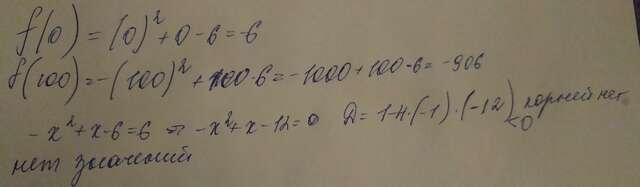 f(0) = (0)² + 0 - 6 = -6
f(100) = -(100)² + 100 - 6 = -1000 + 100 - 6 = -906
-x² + x - 6 = 6 ⇒ -x² + x - 12 = 0 D = 1 - 4·(-1)·(-12) < 0 корней нет
нет значений